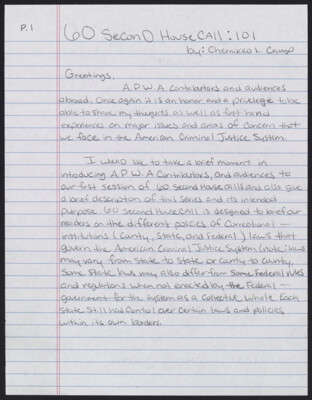 P. 1
60 Second House Call: 101
by: Chernikko L.
Greetings,
A.P.W.A contributors and audiences
abroad. Once again it is an honor and a privelege to be
able to share my thoughts as well as first hand
experiences on major issues and areas of concern that
we face in the American Criminal Justice System.
I would like to take a brief moment in
introducing A.P.W.A Contributors, and audiences to
our first session of 60 Second House calls and also give
a brief description of this series and its intended
purpose. 60 Second House CALL is designed to brief our
readers on the different policies of Correctional -
institutions (County, State, and Federal) laws that
govern the American Criminal Justice System (note: laws
may vary from State to State or County to County.
Some State laws may also differ from some Federal rules
and regulations when not enacted by the Federal -
government for the system as a collective whole. Each
State still had control over certain laws and policies
within its own borders.